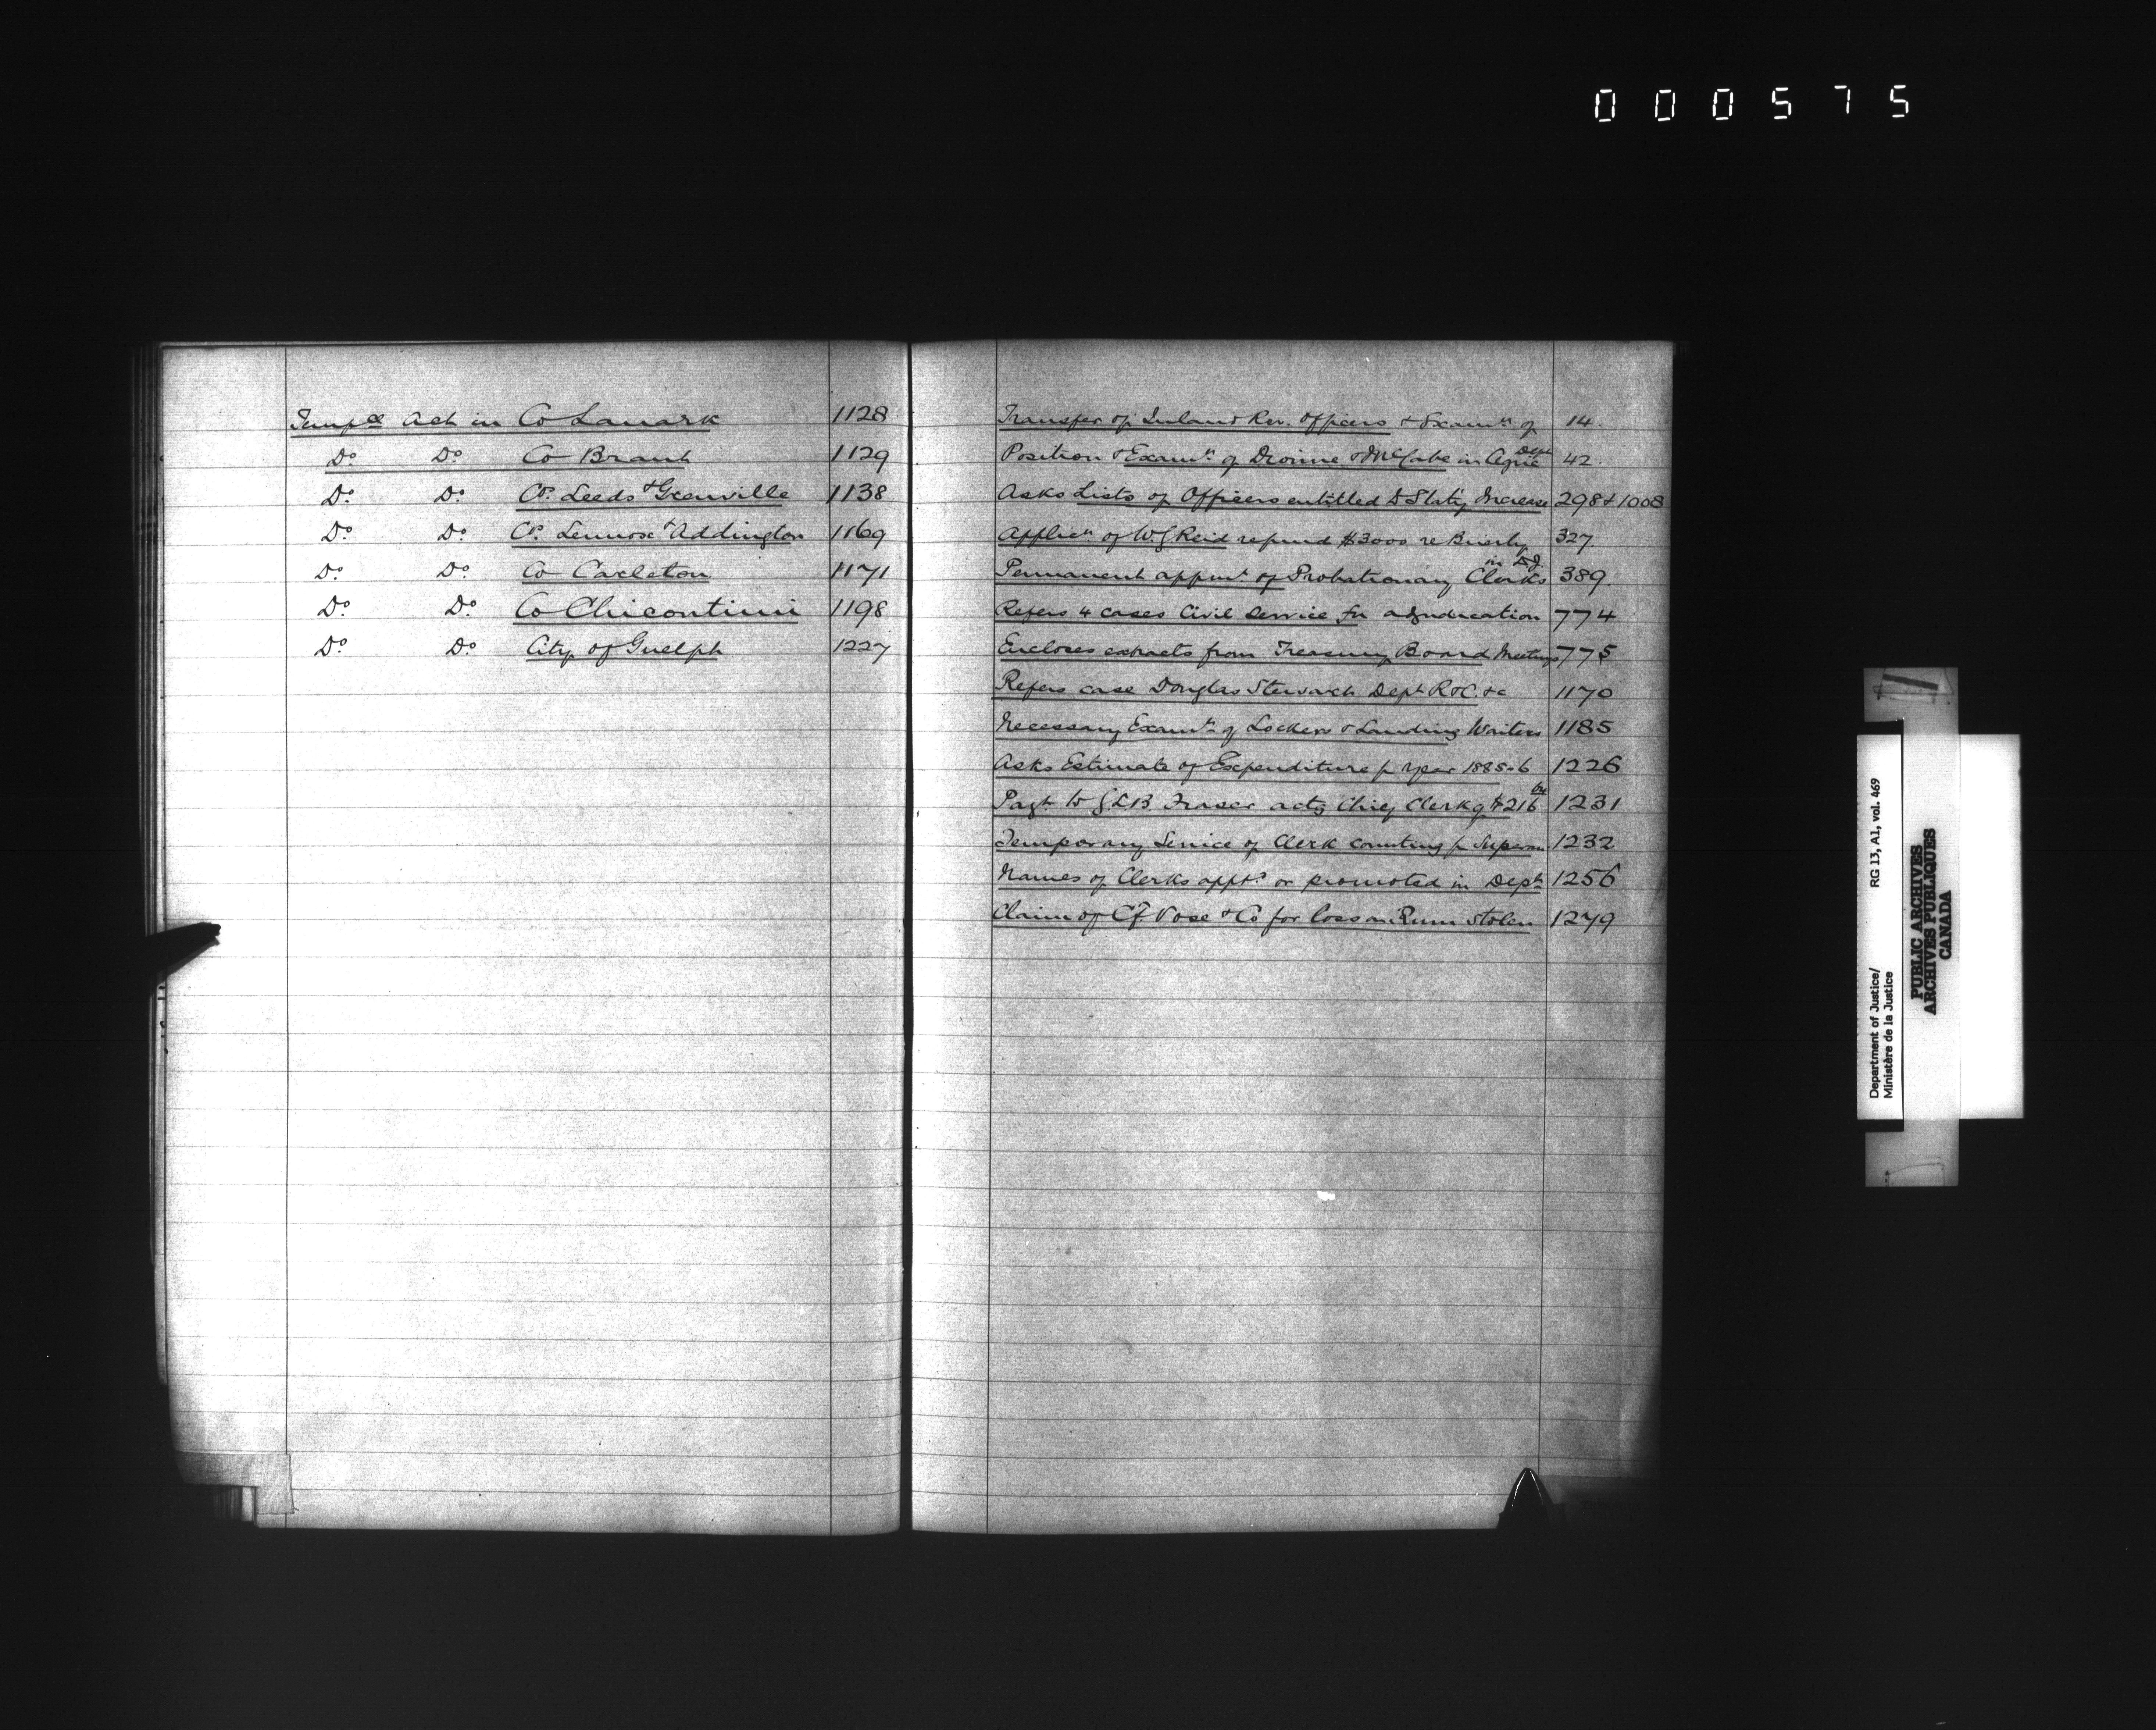 000575
Tempce Act in Co Lanark 1128
Do Do Co Brant 1129
Do Do Cos Leeds & Grenville 1138
Do Do Cos Lennox & Addington 1169
Do Do Co Carleton 1171
Do Do Co Chicoutimi 1198
Do Do City of Guelph 1227
Transfer of Inland Rev. Officers & Examn of 14.
Position & Examn of Dionne & McCabe in Agric Dept 42.
Asks Lists of Officers entitled to Staty Increase 298 & 1008
Applicn of W J Reid refund $3000 re Brierly 327
Permanent appmt of Probationary Clerks in D.J. 389.
Refers 4 cases Civil Service for adjudication 774
Encloses extracts from Treasury Board Meetings 775
Refers case Douglas Stewart Dept R & C. &c 1170
Necessary Examn of Lockers & Landing Waiters 1185
Asks Estimate of Expenditure fr year 1885-6 1226
Payt to J.L.B. Fraser actg Chief Clerk of $216 1231
Temporary Service of Clerk counting fr Superan 1232
Names of Clerks apptd or promoted in Dept 1256
Claim of C F Vose & Co for loss on Rum Stolen 1279
Department of Justice/ RG 13, A1, vol. 469
Ministère de la Justice
PUBLIC ARCHIVES
ARCHIVES PUBLIQUES
CANADA